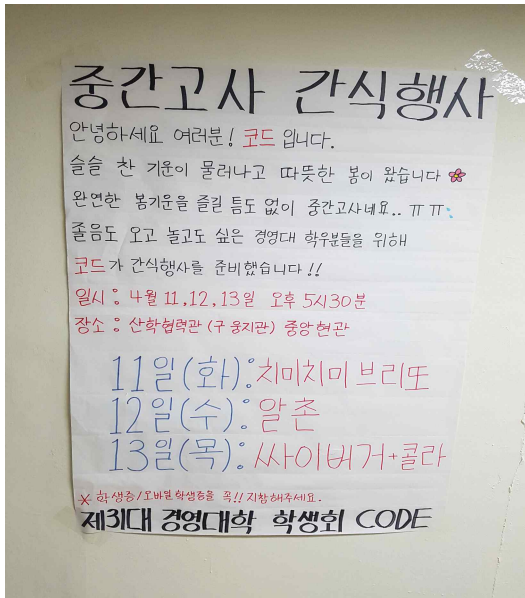 중간고사 간식행사
안녕하세요 여러분! 코드 입니다.
슬슬 찬 기운이 물러나고 따뜻한 봄이 왔습니다
완연한 봄기운을 즐길 틈도 없이 중간고사네요.. ㅠㅠ
졸음도 오고 놀고도 싶은 경영대 학우분들을 위해
코드가 간식행사를 준비했습니다!!
일시 : 4월 11, 12, 13일 오후 5시30분
장소 : 산학협력관 (구 웅지관) 중앙현관
11일(화):치미치미 브리또
12일(수):알촌
13일(목):싸이버거+콜라
* 학생증/모바일 학생증을 꼭!! 지참해주세요.
제31대 경영대학 학생회 CODE